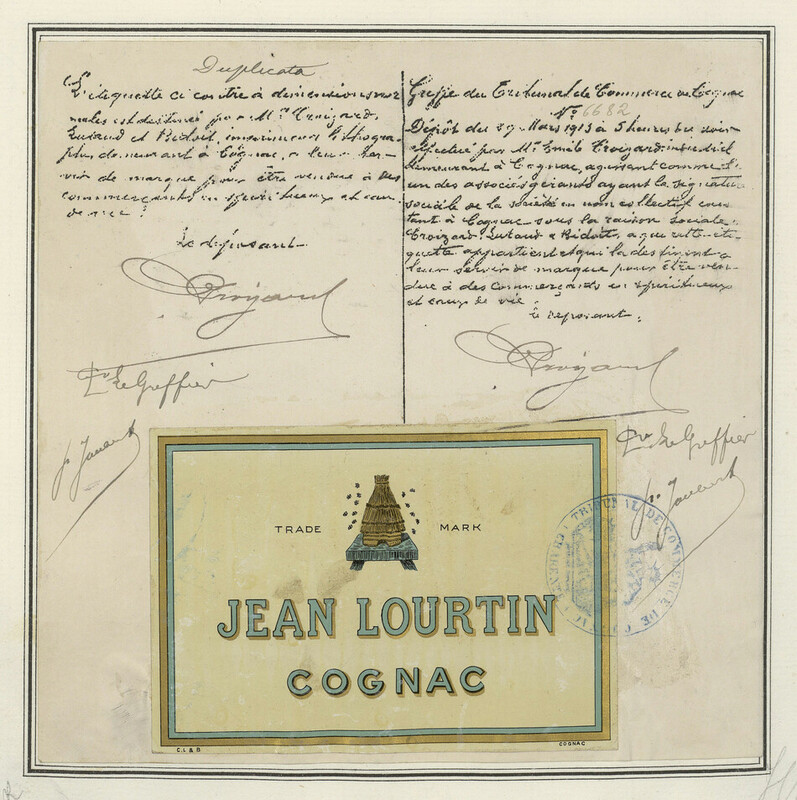 Duplicata
L'étiquette ci contre à dimensions nor
males est destinée par Mrs Croizard,
Lutaud et Bidoit, imprimeurs lithogra-
phes, demeurant à Cognac, à leur ser-
vir de marque pour être vendue à des
commerçants en spiritueux et eaux
de vie.
Le déposant.
Croizard
Pr Le Greffier
Greffe du Tribunal de Commerce de Cognac
No 6682
Dépôt du 27 Mars 1913 à 5 heures du soir
effectué par Mr Emile Croizard, industriel
demeurant à Cognac, agissant comme l'
un des associés gérants ayant la signature
sociale de la société en nom collectif exis
tant à Cognac sous la raison sociale:
Croizard, Lutaud & Bidoit, à qui cette éti-
quette appartient et qui la destinent à
leur servir de marque pour être ven-
due à des commerçants en spiritueux
et eaux de vie.
le déposant:
Croizard
Pr Le Greffier
TRIBUNAL DE COMMERCE DE COGNAC (CHARENTE)
TRADE MARK
JEAN LOURTIN
COGNAC
C.L & B
COGNAC